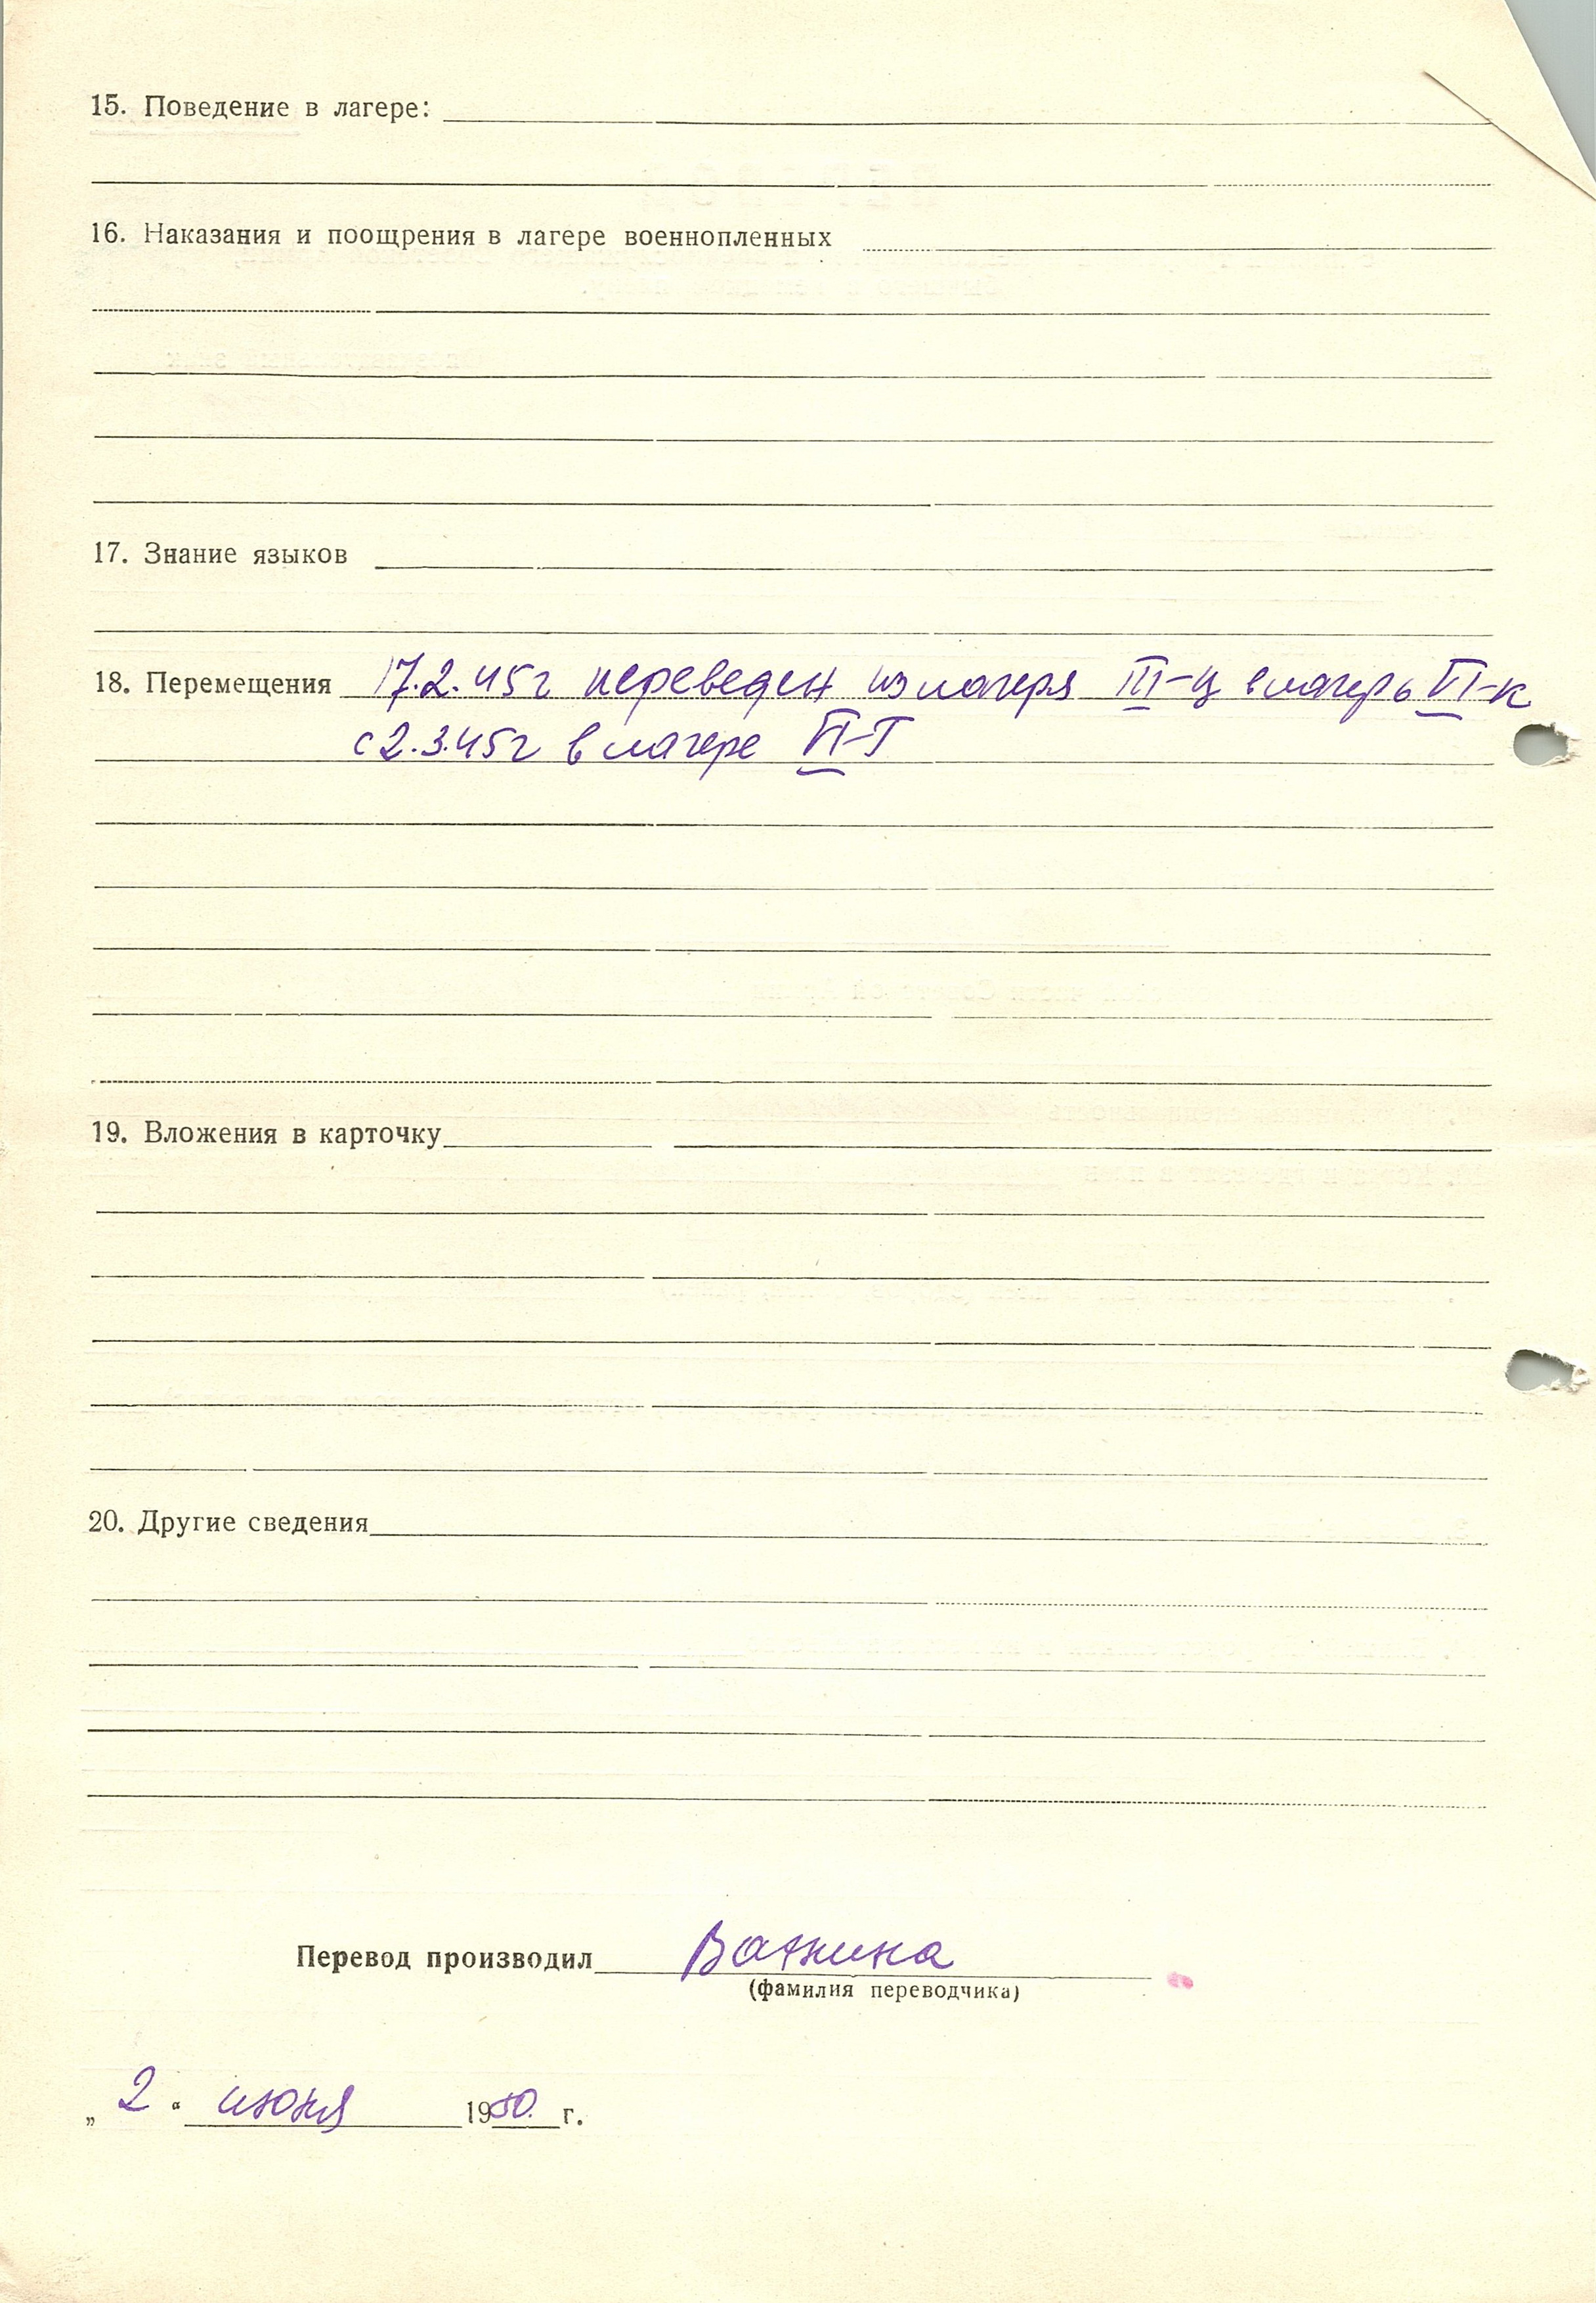 15. Поведение в лагере:
16. Наказания и поощрения в лагере военнопленных
17. Знание языков
18. Перемещения 17.2.45г переведен из лагеря III-ц в лагерь VI-к
с 2.3.45г в лагере VI-Г
19. Вложения в карточку
20. Другие сведения
Перевод производил
(фамилия переводчика)
„ 2 “ июня 1950. г.